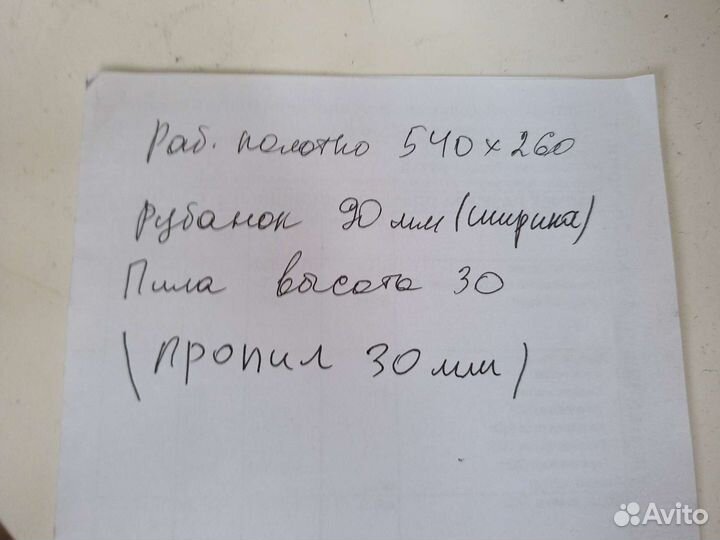 Раб. полотно 540 x 260
Рубанок 90 мм (ширина)
Пила высота 30
(пропил 30 мм)
Avito